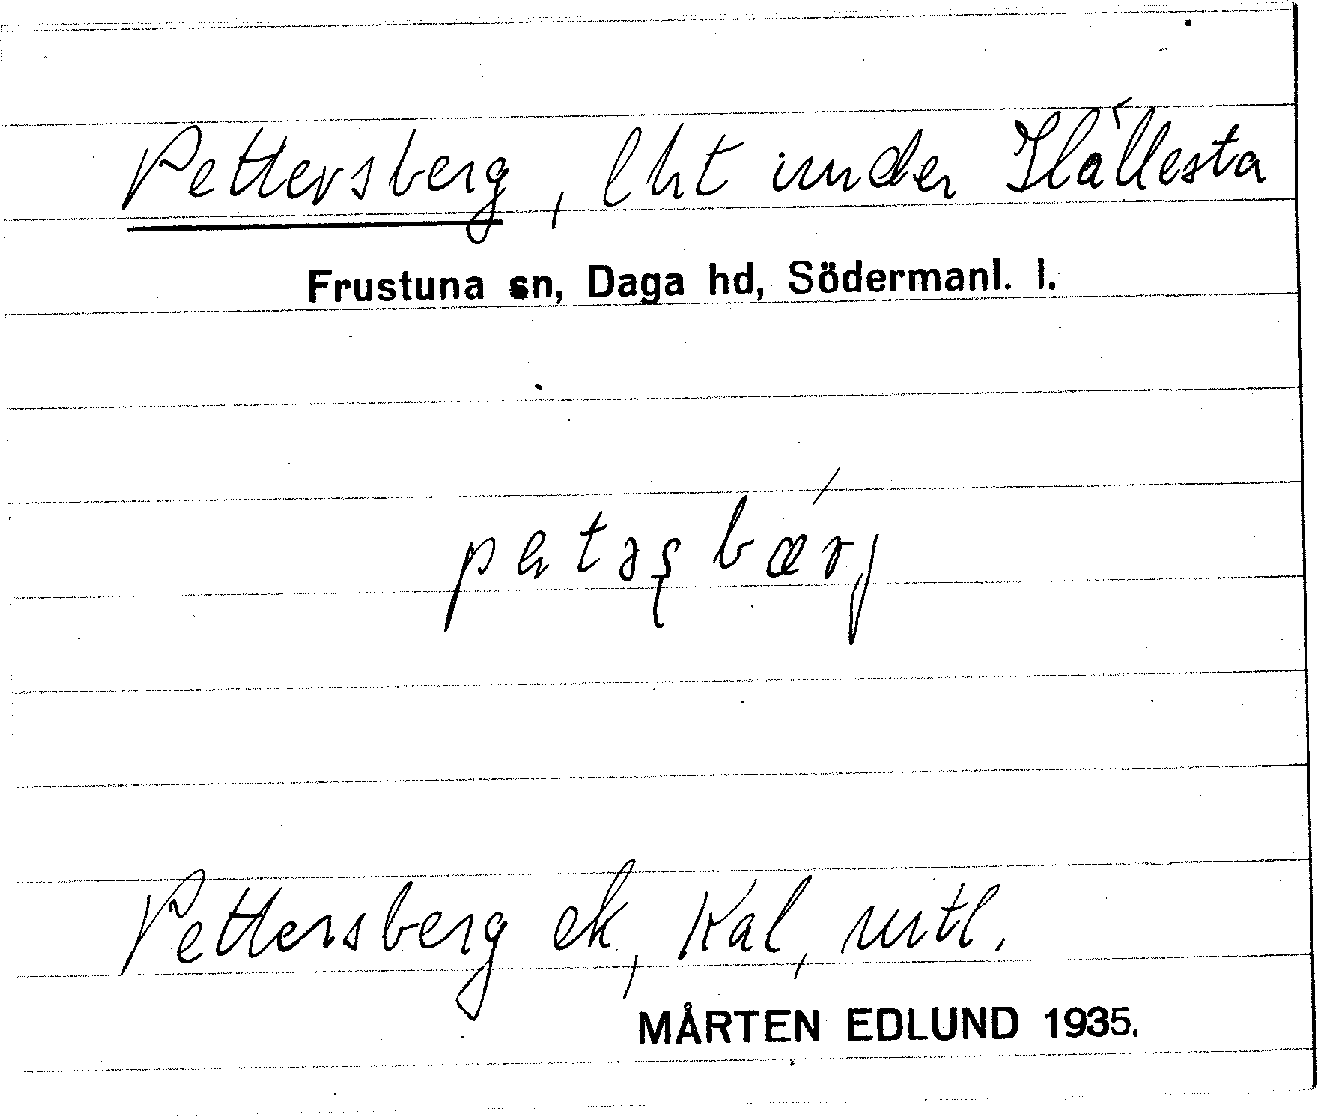 Pettersberg, lht under Hållesta
Frustuna sn, Daga hd, Södermanl. l.
Pettersberg ek, Kal, uttl.
MÅRTEN EDLUND 1935.